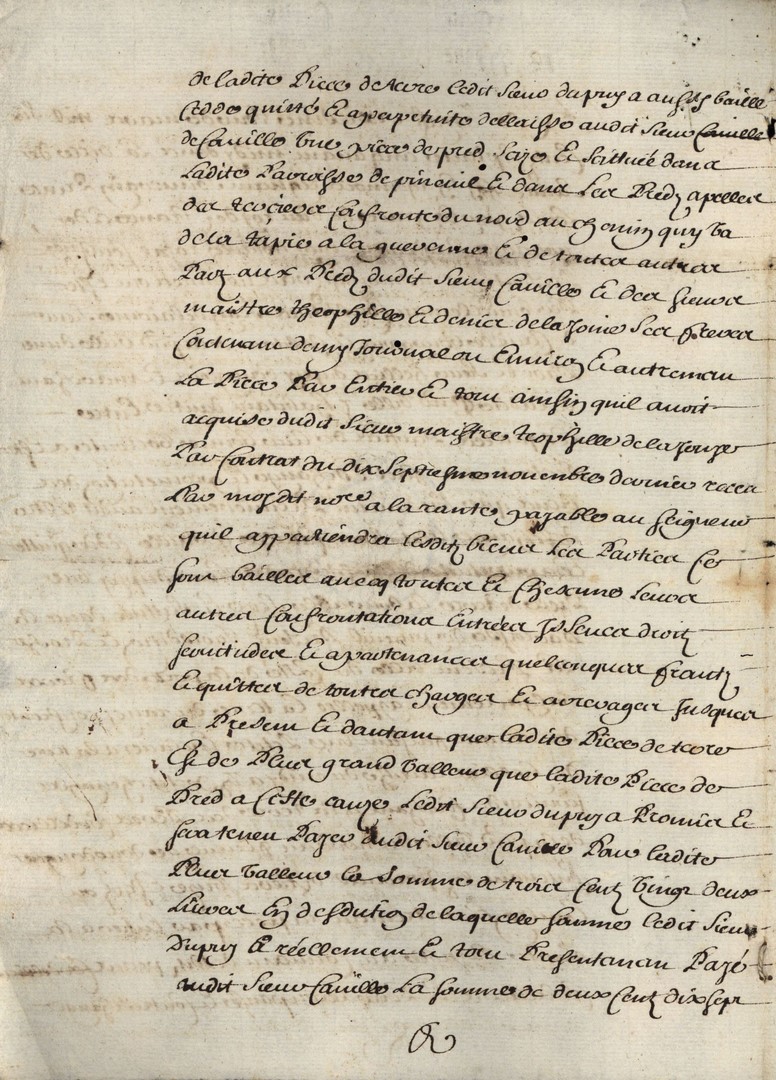 de ladite Piece de terre ledit Sieur dupuy a aussy baillé
cedde quitté Et a perpetuité dellaissé audit Sieur Cauille
de Cauille Vne piece de pred Size Et Scittuée dans
Ladite Parroisse de pineuil Et dans Les Predz apelles
des Confronte du nord au chemin quy Va
de la rapie a la guerenne Et de toutes autres
Partz aux Predz dudit Sieur Cauille Et des Sieurs
maistre theophille Et denis de la Ses freres
Contenant demy Journal ou Enuiron Et autrement
La Piece Par Entier Et tout ainsin quil auoit
acquise dudit Sieur maistre teophille de la
Par Contrat du dix Septiesme nouembre dernier receu
Par moydit nore a la rante payable au Seigneur
quil appartiendra lesditz biens Les Parties Ce
Sont bailles auecq toutes Et Chescune Leurs
autres Confrontations Entrées Issues droitz
Seruitudes Et apartenances quelconques frantz
Et quittes de toutes charges Et arreyages Jusques
a Present Et dautant que ladite Piece de terre
Est de Plus grand Valleur que ladite Piece de
Pred a Ceste cauze Ledit Sieur dupuy a Promis Et
Sera teneu Payer audit Sieur Cauille Pour ladite
Plus Valleur la Somme de trois Centz Vingt deux
Liures En desdution de laquelle Somme ledit Sieur
Dupuy a réellement Et tout Presentement Payé
audit Sieur Cauille La Somme de deux Centz dix Sept